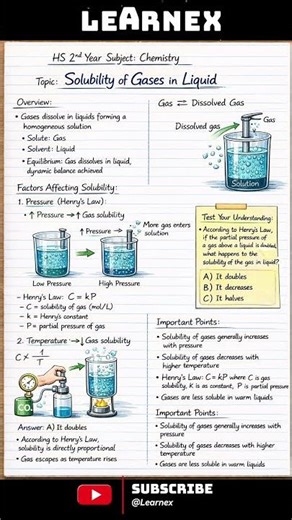 LEARNEX
HS 2nd Year Subject: Chemistry
Topic: Solubility of Gases in Liquid
Overview:
• Gases dissolve in liquids forming a
homogeneous solution
• Solute: Gas
• Solvent: Liquid
• Equilibrium: Gas dissolves in liquid,
dynamic balance achieved
Gas ⇌ Dissolved Gas
Gas
Dissolved gas
Solution
Factors Affecting Solubility:
1. Pressure (Henry's Law):
• ↑ Pressure → ↑ Gas solubility
• ↑ Pressure
More gas enters
solution
Low Pressure
High Pressure
– Henry's Law: C = kP
– C = solubility of gas (mol/L)
– k = Henry's constant
– P = partial pressure of gas
2. Temperature → ↓ Gas solubility
C ∝ 1/T
Answer: A) It doubles
• According to Henry's Law,
solubility is directly proportional
• Gas escapes as temperature rises
Test Your Understanding:
• According to Henry's Law,
if the partial pressure of
a gas above a liquid is doubled,
what happens to the
solubility of the gas in liquid?
A) It doubles
B) It decreases
C) It halves
Important Points:
• Solubility of gases generally increases
with pressure
• Solubility of gases decreases with
higher temperature
• Henry's Law: C = kP where C is gas
solubility, K is as constant, P is partial pressure
• Gases are less soluble in warm liquids
Important Points:
• Solubility of gases generally increases with
pressure
• Solubility of gases decreases with higher
temperature
• Gases are less soluble in warm liquids
SUBSCRIBE
@Learnex